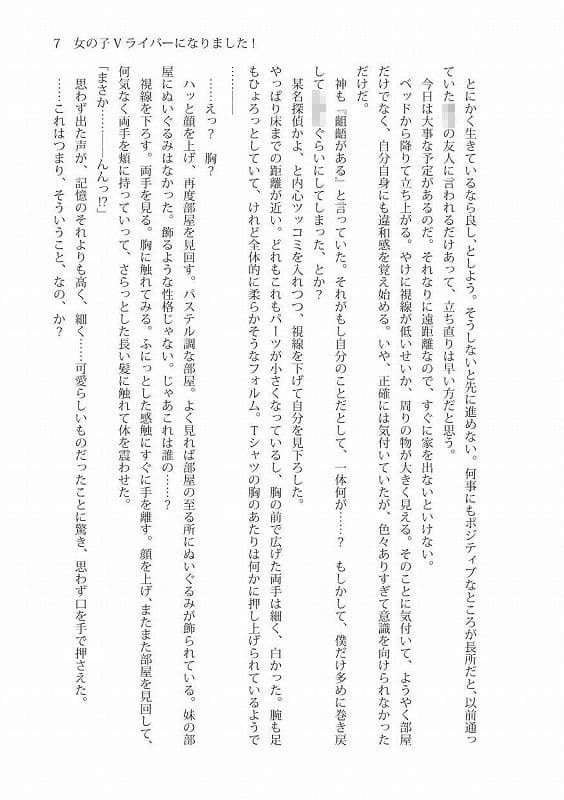 7　女の子Vライバーになりました！
　とにかく生きているなら良し、としよう。そうしないと先に進めない。何事にもポジティブなところが長所だと、以前通っ
ていたの友人に言われるだけあって、立ち直りは早い方だと思う。
　今日は大事な予定があるのだ。それなりに遠距離なので、すぐに家を出ないといけない。
　ベッドから降りて立ち上がる。やけに視線が低いせいか、周りの物が大きく見える。そのことに気付いて、ようやく部屋
だけでなく、自分自身にも違和感を覚え始める。いや、正確には気付いていたが、色々ありすぎて意識を向けられなかった
だけだ。
　神も『齟齬がある』と言っていた。それがもし自分のことだとして、一体何が……？　もしかして、僕だけ多めに巻き戻
してぐらいにしてしまった、とか？
　某名探偵かよ、と内心ツッコミを入れつつ、視線を下げて自分を見下ろした。
　やっぱり床までの距離が近い。どれもこれもパーツが小さくなっているし、胸の前で広げた両手は細く、白かった。腕も足
もひょろっとしていて、けれど全体的に柔らかそうなフォルム。Tシャツの胸のあたりは何かに押し上げられているようで
…………
　……えっ？　胸？
　ハッと顔を上げ、再度部屋を見回す。パステル調な部屋。よく見れば部屋の至る所にぬいぐるみが飾られている。妹の部
屋にぬいぐるみはなかった。飾るような性格じゃない。じゃあこれは誰の……？
　視線を下ろす。両手を見る。胸に触れてみる。ふにっとした感触にすぐに手を離す。顔を上げ、またまた部屋を見回して、
何気なく両手を頬に持っていって、さらっとした長い髪に触れて体を震わせた。
「まさか…………んんっ!?」
　思わず出た声が、記憶のそれよりも高く、細く……可愛らしいものだったことに驚き、思わず口を手で押さえた。
　……これはつまり、そういうこと、なの、か？